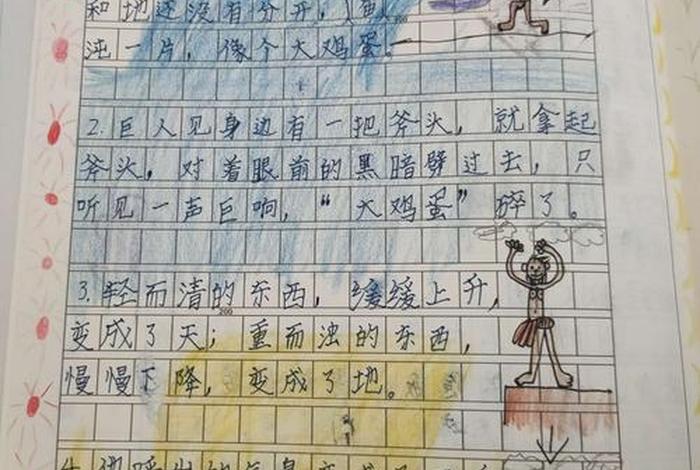 和地还没有分开，
沌一片，像个大鸡蛋。
2.巨人见身边有一把斧头，就拿起
斧头，对着眼前的黑暗劈过去，只
听见一声巨响，“大鸡蛋”碎了。
3.轻而清的东西，缓缓上升，
200
变成了天；重而浊的东西，
慢慢下降，变成了地。